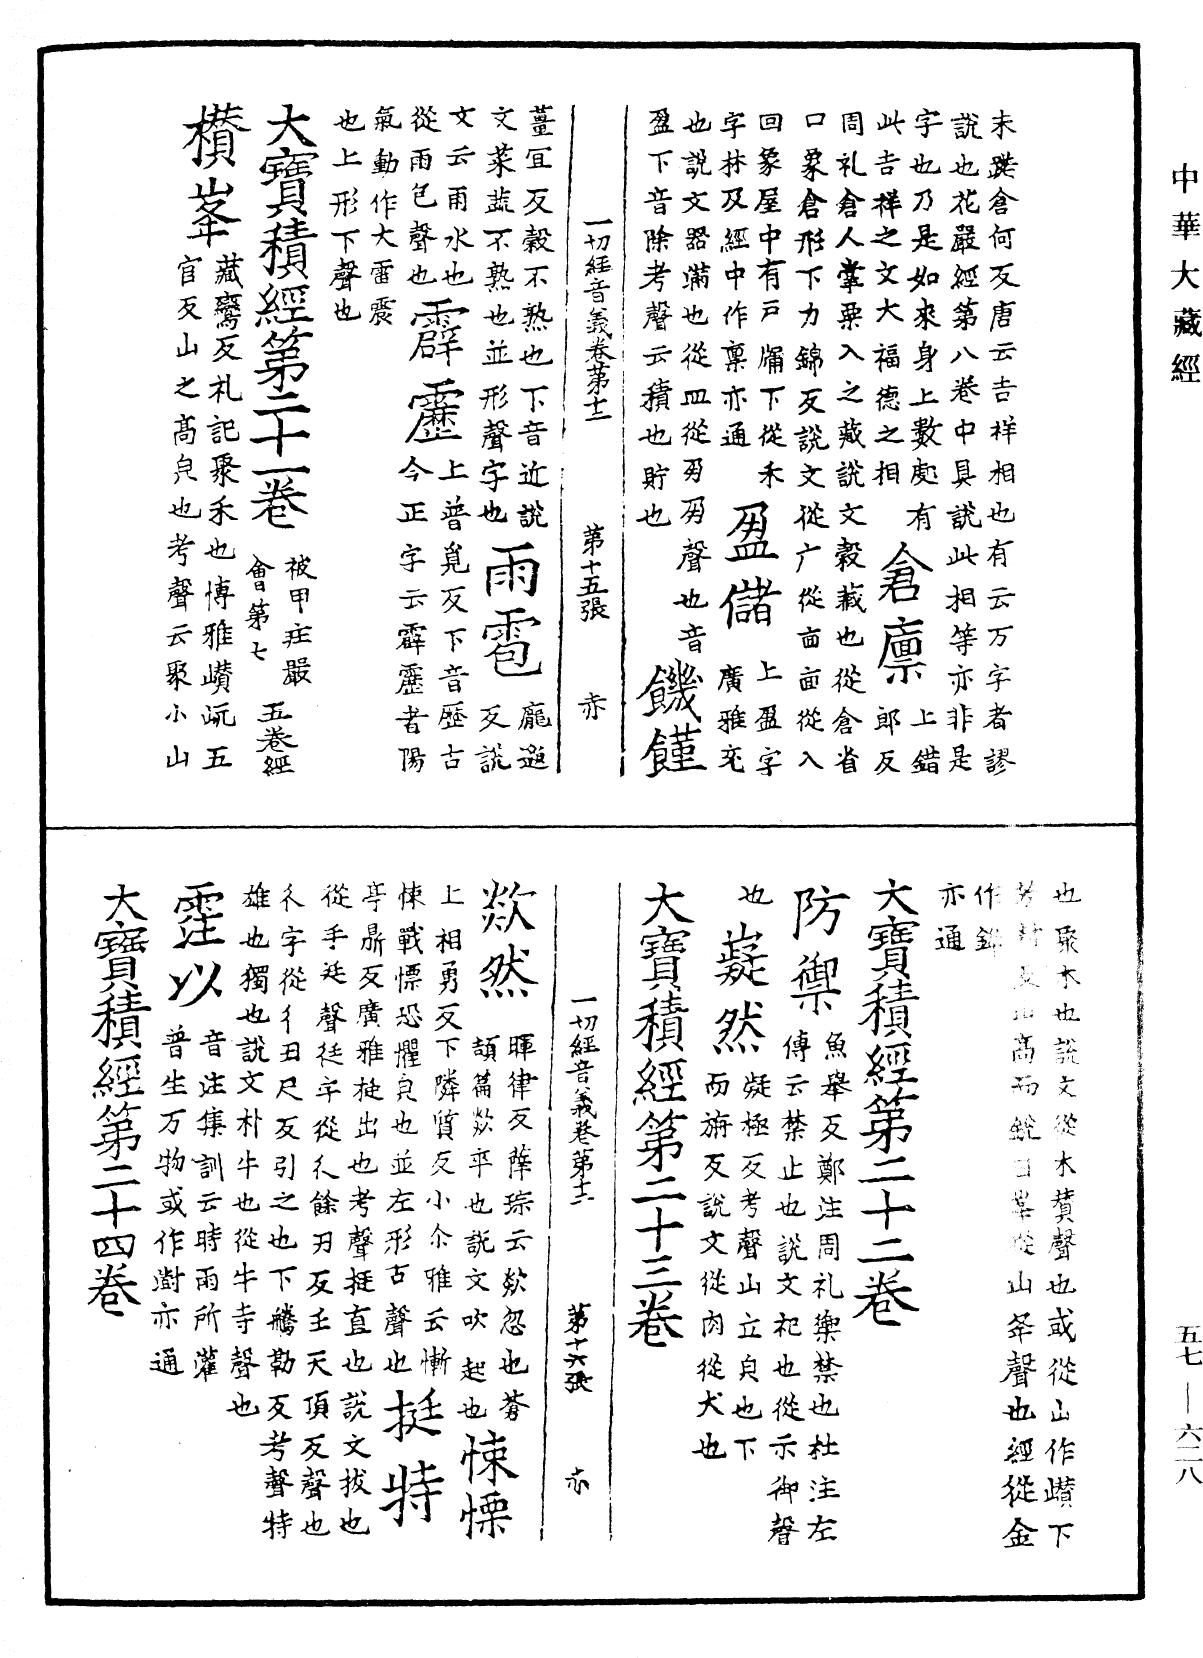 中華大藏經
末踐倉何反唐云吉祥相也有云万字者謬
說也花嚴經第八卷中具說此相等亦非是
字也乃是如來身上數處有
此吉祥之文大福德之相
倉廩
上錯
郎反
周礼倉人掌粟入之藏說文穀藏也從倉省
口象倉形下力錦反說文從广從㐭㐭從入
回象屋中有戶牖下從禾
字林及經中作稟亦通
盈儲
上盈字
廣雅充
也說文器滿也從皿從夃夃聲也音
盈下音除考聲云積也貯也
饑饉
一切經音義卷第十二 第十五張 赤
薑宜反穀不熟也下音近說
文菜蔬不熟也並形聲字也
雨雹
龐邈
反說
文云雨水也
從雨包聲也
霹靂
上普覓反下音歷古
今正字云霹靂者陽
氣動作大雷震
也上形下聲也
大寶積經第二十一卷
被甲莊嚴
會第七
五卷經
欑峯
藏鸞反礼記聚禾也博雅巑岏五
官反山之高皃也考聲云聚小山
也聚木也說文從木贊聲也或從山作巑下
高而銳曰峯從山夆聲也經從金
作鋒
亦通
大寶積經第二十二卷
防禦
魚舉反鄭注周礼禦禁也杜注左
傳云禁止也說文祀也從示御聲
也
嶷然
凝極反考聲山立皃也下
而旃反說文從肉從犬也
大寶積經第二十三卷
一切經音義卷第十二 第十六張 赤
欻然
暉律反薛琮云欻忽也蒼
頡篇欻卒也說文吹起也
悚慄
上相勇反下隣質反小尒雅云慚
悚戰慄恐懼皃也並左形右聲也
挺特
亭鼎反廣雅挺出也考聲挺直也說文拔也
從手廷聲廷字從廴餘忍反壬天頂反聲也
廴字從彳丑尺反引之也下騰勒反考聲特
雄也獨也說文朴牛也從牛寺聲也
霔以
音注集訓云時雨所灌
普生万物或作澍亦通
大寶積經第二十四卷
五七—六二八